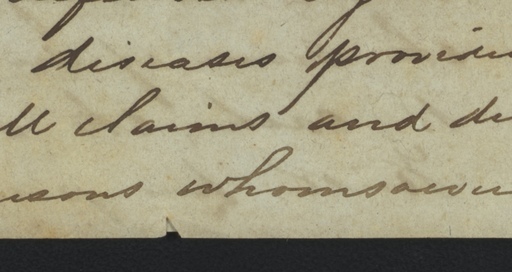 diseases provide
ll claims and de
rsons whomsoever